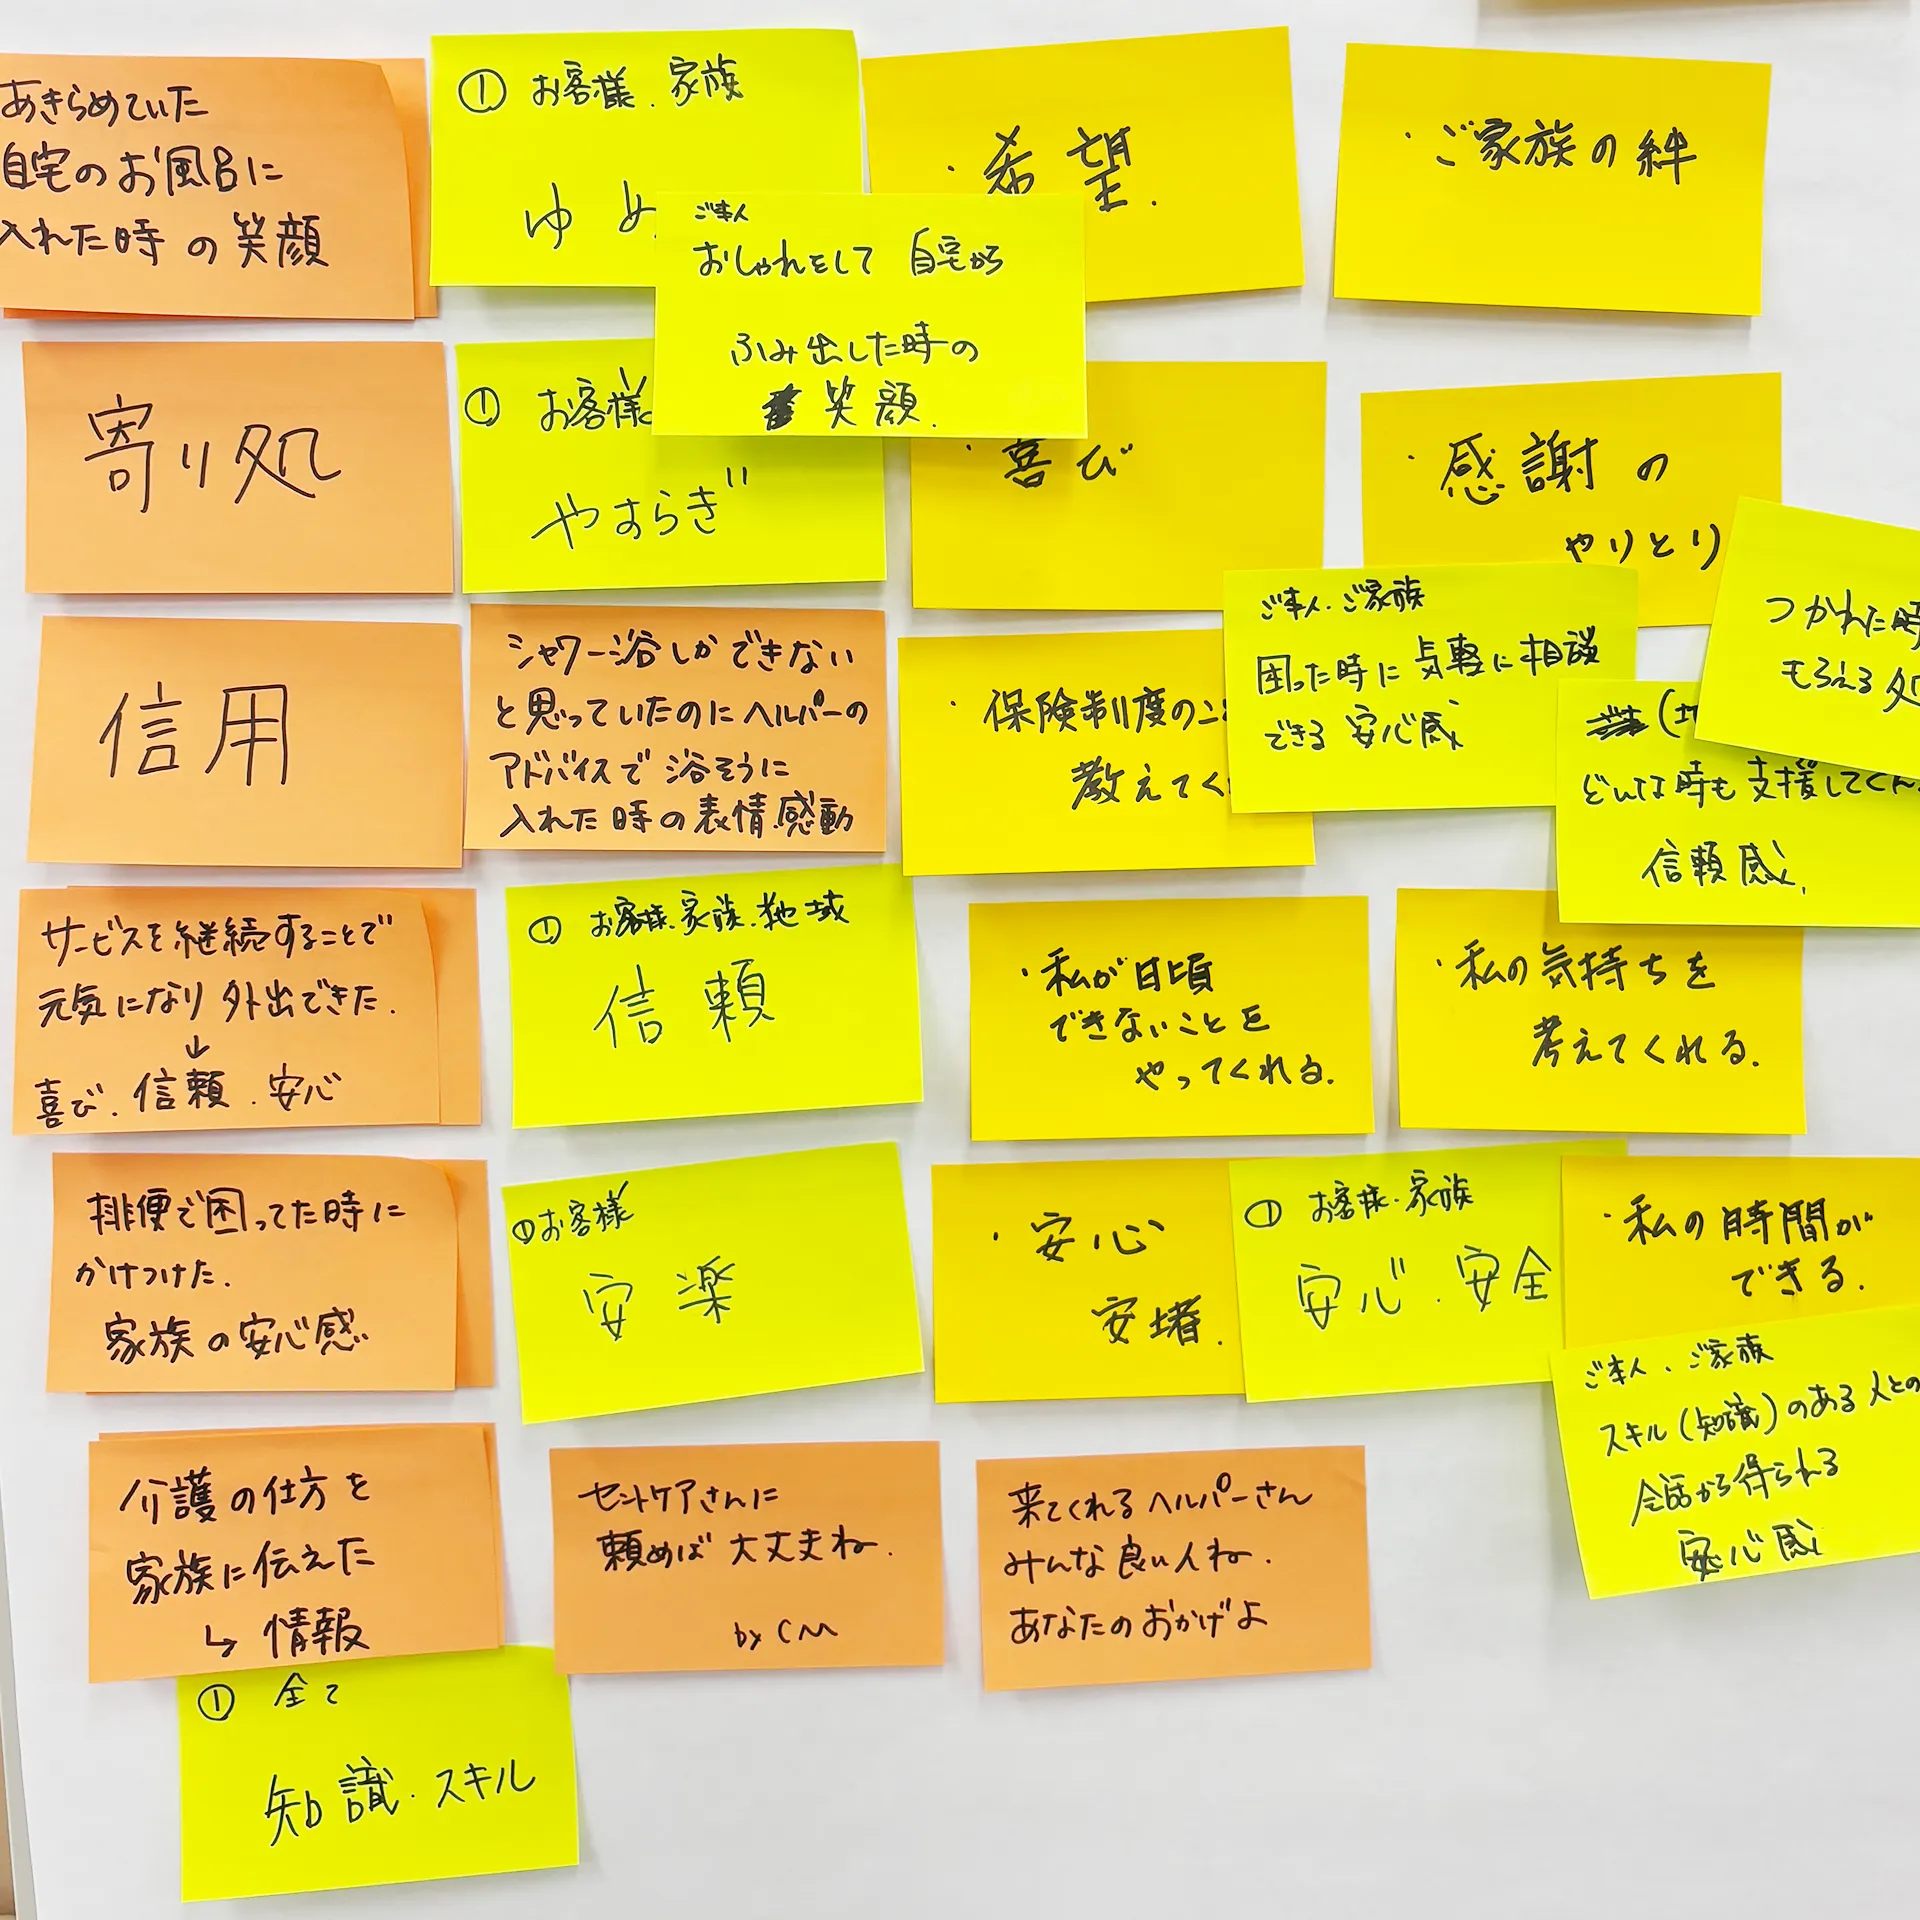 あきらめていた
自宅のお風呂に
入れた時の笑顔
① お客様.家族
ゆめ
・希望.
・ご家族の絆
ご本人
おしゃれをして 自宅から
ふみ出した時の
笑顔.
寄り処
① お客様
やすらぎ
・喜び
・感謝の
やりとり
信用
シャワー浴しかできない
と思っていたのにヘルパーの
アドバイスで浴そうに
入れた時の表情.感動
・保険制度のこ
教えてく
ご本人.ご家族
困った時に気軽に相談
できる 安心感
つかれた時
もらえる 処
(地
どんな時も支援してくれ
信頼感.
サービスを継続することで
元気になり 外出できた.
↓
喜び.信頼.安心
① お客様.家族.地域
信頼
・私が日頃
できないことを
やってくれる.
・私の気持ちを
考えてくれる.
排便で困ってた時に
かけつけた.
家族の安心感
①お客様
安楽
・安心
安堵.
① お客様.家族
安心.安全
・私の時間が
できる.
ご本人.ご家族
スキル(知識)のある人との
会話から得られる
安心感
介護の仕方を
家族に伝えた
↳ 情報
セントケアさんに
頼めば大丈夫ね.
by CM
来てくれるヘルパーさん
みんな良い人ね.
あなたのおかげよ
① 全て
知識.スキル